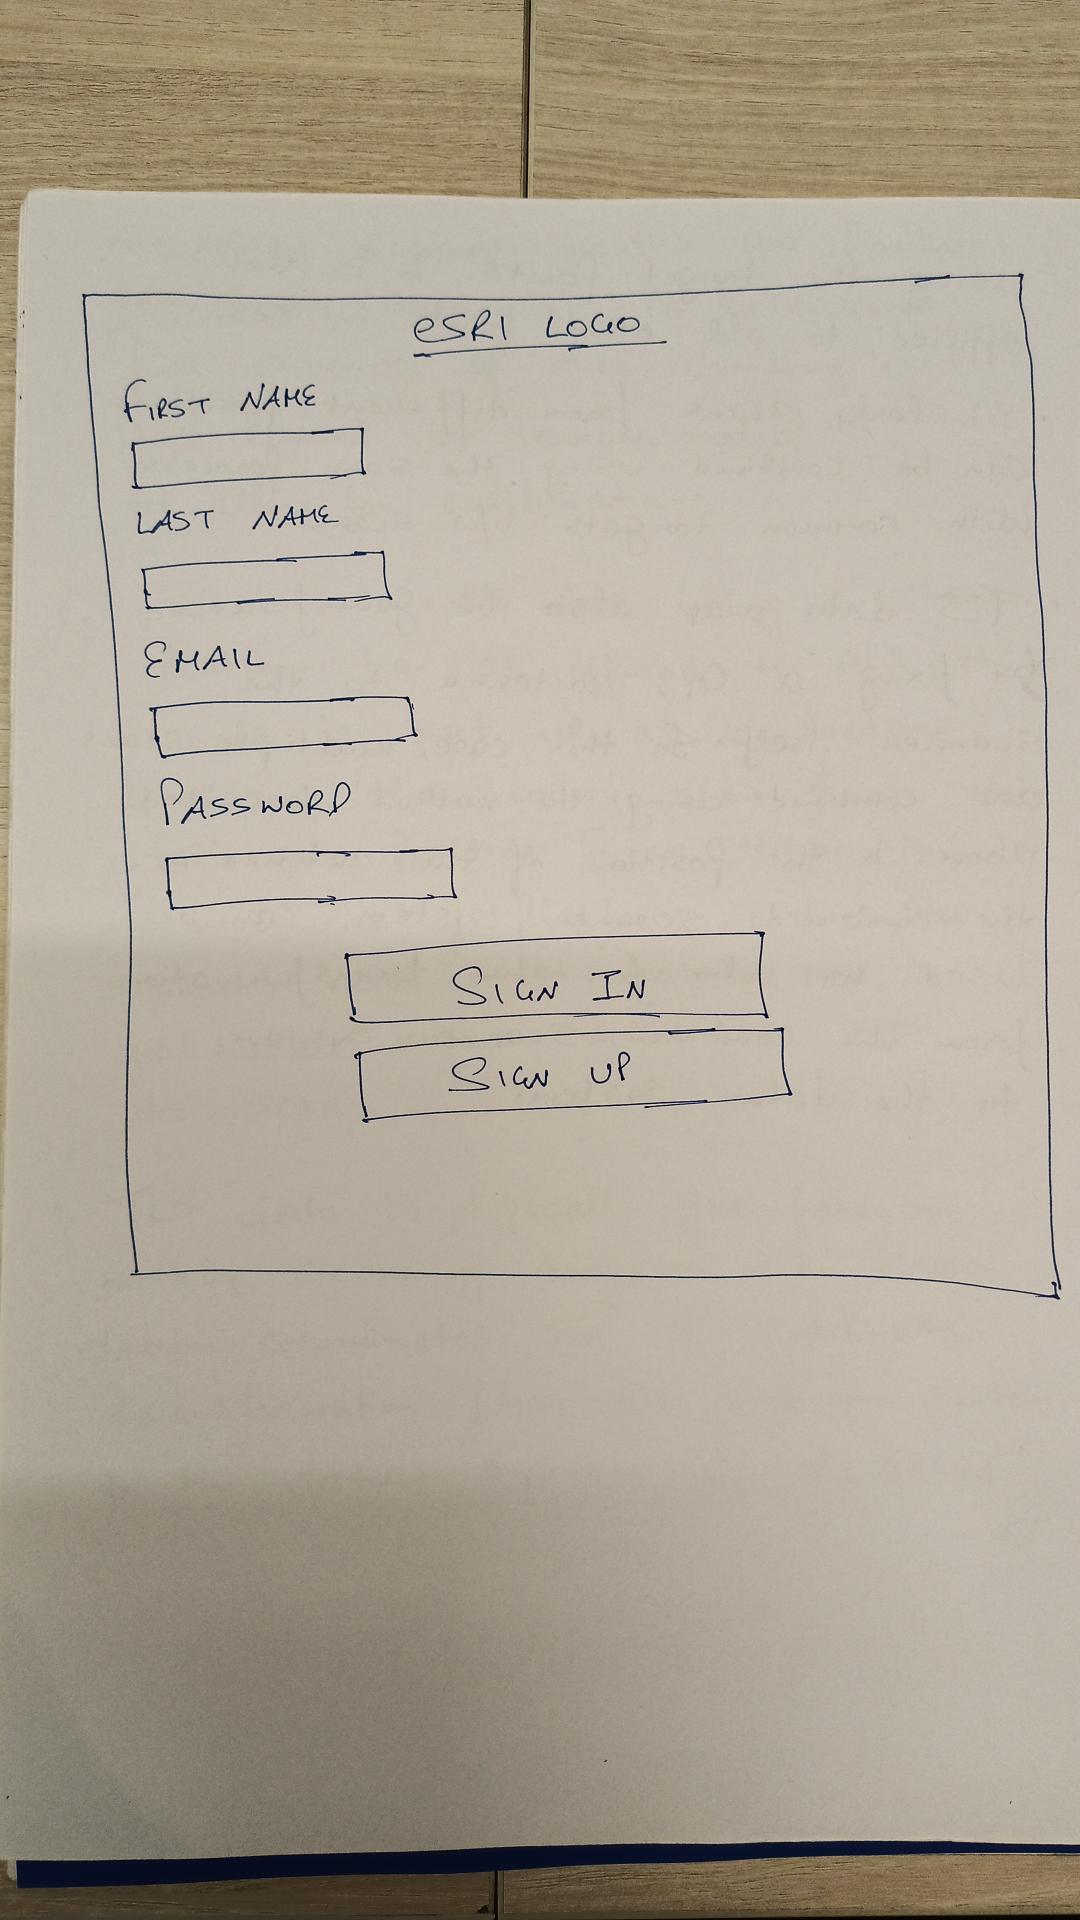 eSRI LOGO
FIRST NAME
LAST NAME
EMAIL
PASSWORD
SIGN IN
SIGN UP